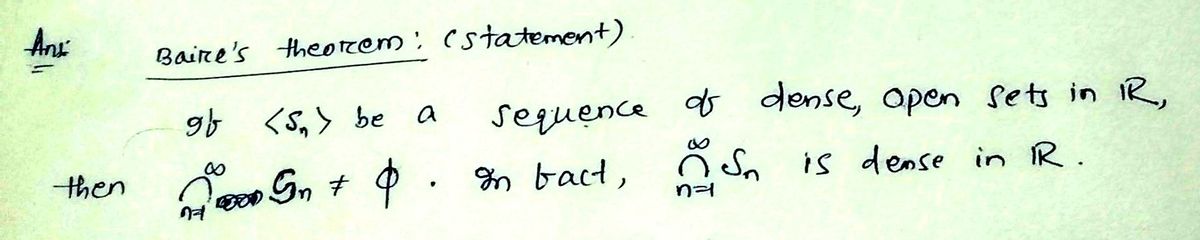 Ans:
Baire's theorem: (statement)
If <Sₙ> be a sequence of dense, open sets in ℝ,
then ∞⋂n=1 Sₙ ≠ ϕ. In fact, ∞⋂n=1 Sₙ is dense in ℝ.